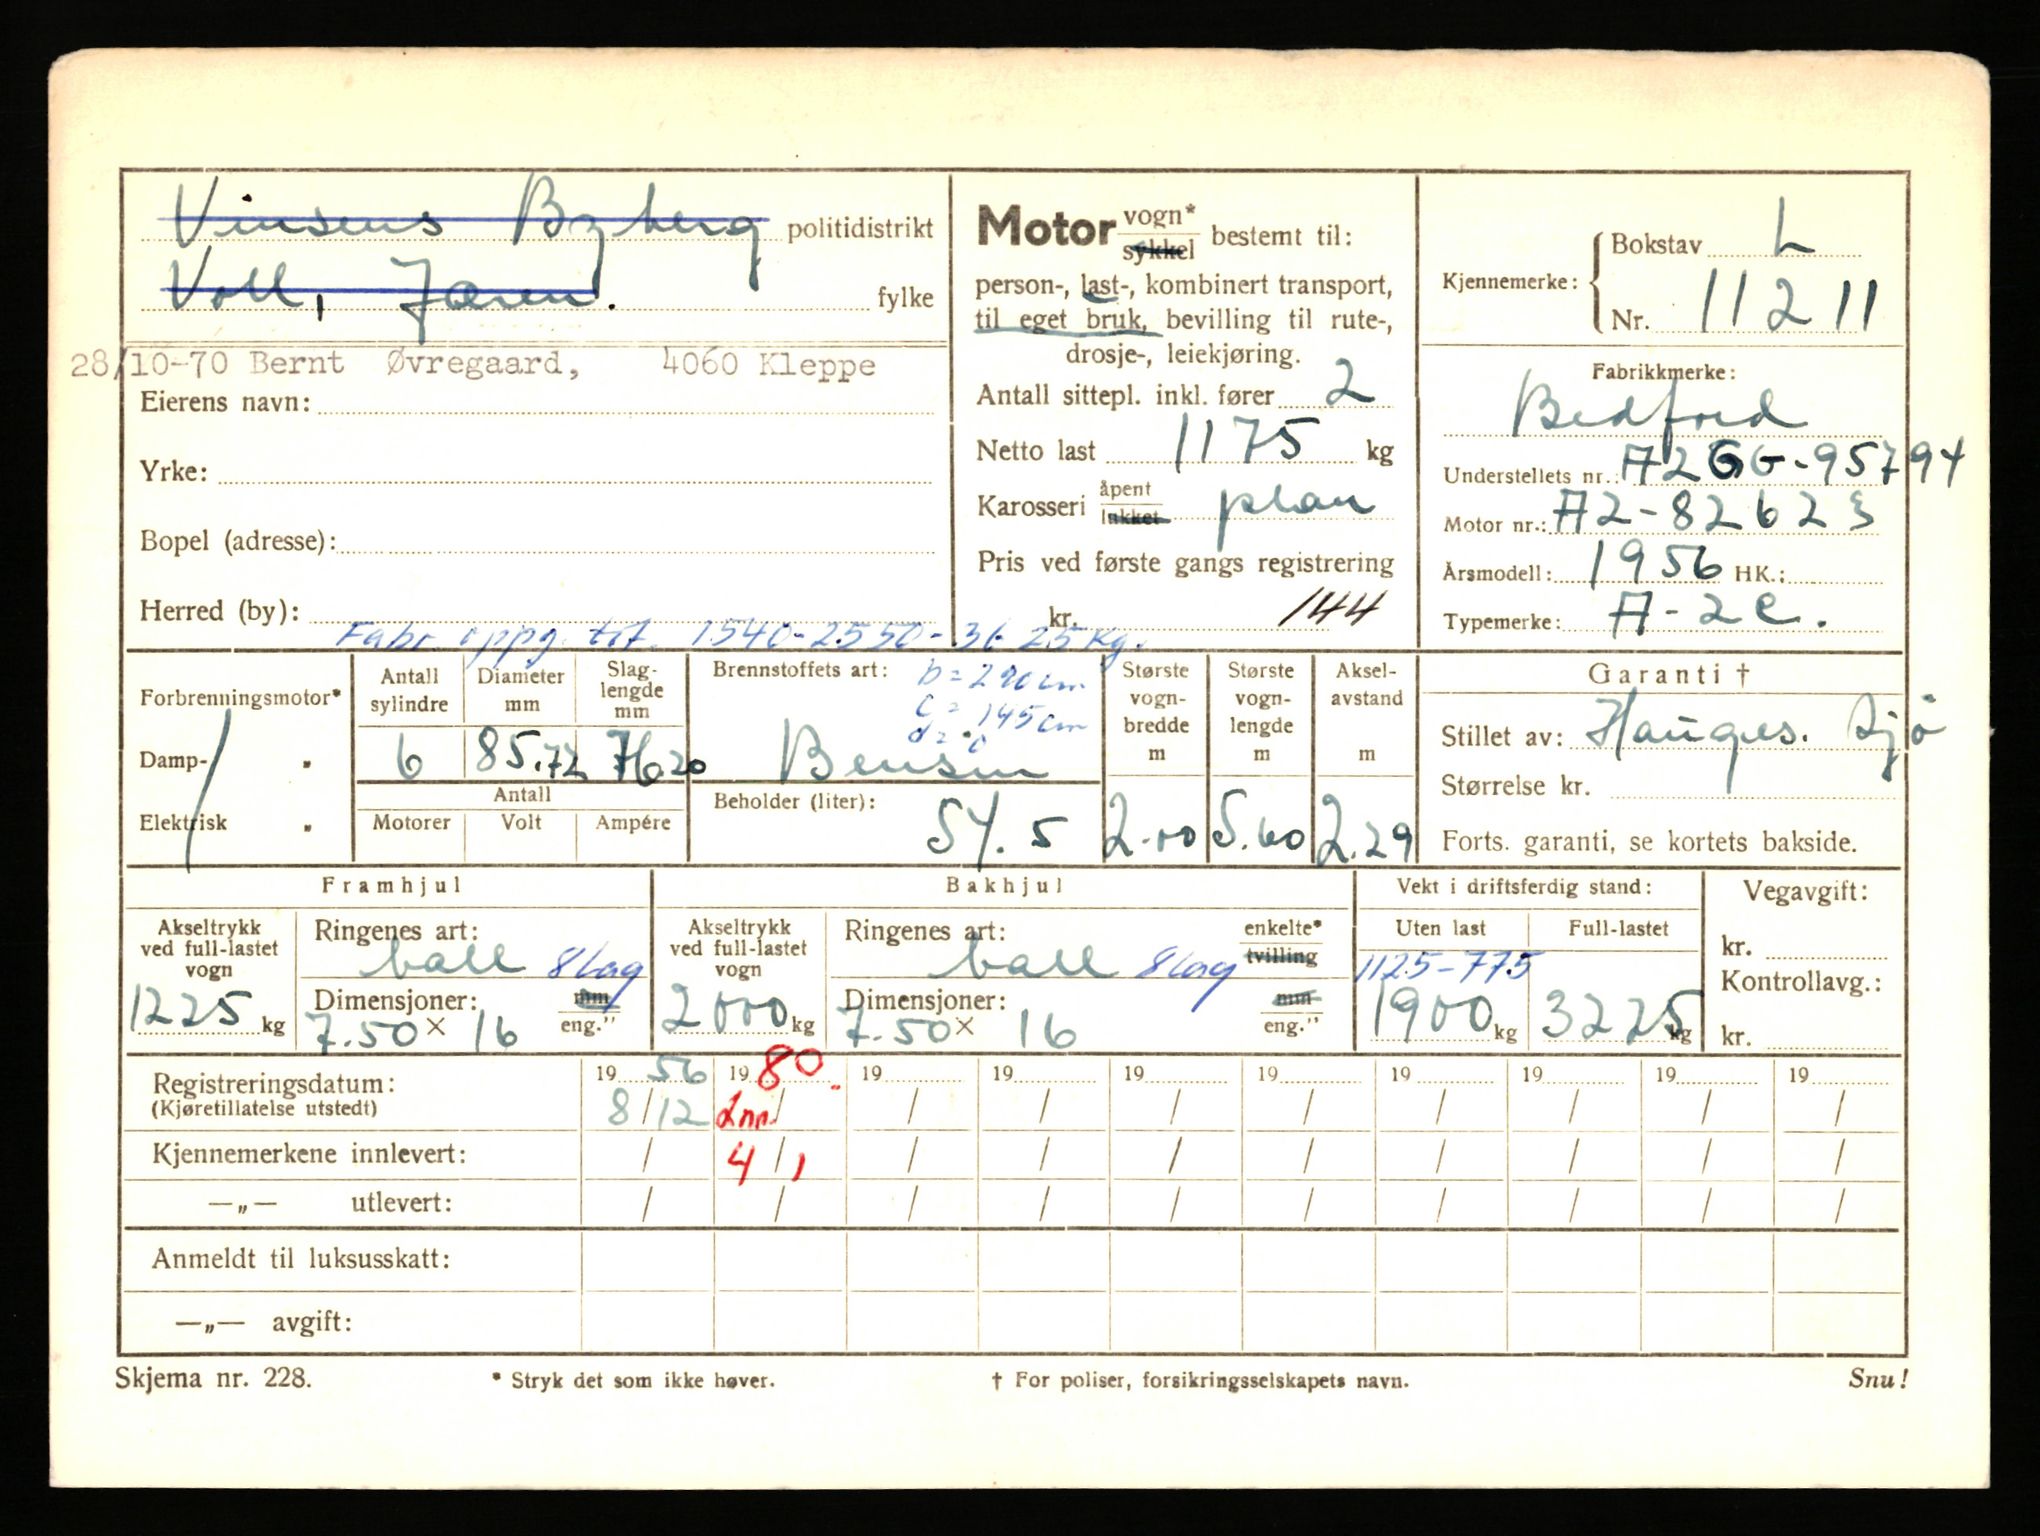 Vinsens Byberg politidistrikt
Voll, Jæren. fylke
28/10-70 Bernt Øvregaard, 4060 Kleppe
Eierens navn:
Yrke:
Bopel (adresse):
Herred (by):
Fabr. oppg. tot. 1540-2550-3625 Kg.
Motor vogn* sykkel bestemt til:
person-, last-, kombinert transport,
til eget bruk, bevilling til rute-,
drosje-, leiekjøring.
Antall sittepl. inkl. fører 2
Netto last 1175 kg
Karosseri åpent lukket plan
Pris ved første gangs registrering
kr. 144
Kjennemerke: Bokstav L
Nr. 11211
Fabrikkmerke:
Bedford
Understellets nr.: A2GG-95794
Motor nr.: A2-82623
Årsmodell: 1956 HK.:
Typemerke: A-2C.
Forbrenningsmotor*
Damp- „
Elektrisk „
Antall sylindre 6
Diameter mm 85.72
Slag-lengde mm 76.20
Antall
Motorer Volt Ampére
Brennstoffets art: b=290cm
c=145cm
d=0
Bensin
Beholder (liter): 54.5
Største vogn-bredde m 2.00
Største vogn-lengde m 5.60
Aksel-avstand m 2.29
Garanti †
Stillet av: Hauges. Sjø
Størrelse kr.
Forts. garanti, se kortets bakside.
Framhjul
Akseltrykk ved full-lastet vogn 1225 kg
Ringenes art: ball 8 lag
Dimensjoner: mm
7.50 x 16 eng."
Bakhjul
Akseltrykk ved full-lastet vogn 2000 kg
Ringenes art: ball 8 lag enkelte* tvilling
Dimensjoner: mm
7.50 x 16 eng."
Vekt i driftsferdig stand:
Uten last Full-lastet
1125-775
1900 kg 3225 kg
Vegavgift:
kr.
Kontrollavg.:
kr.
Registreringsdatum: 19 56 19 80 19 19 19 19 19 19 19 19
(Kjøretillatelse utstedt) 8/12 Inn. / / / / / / / / /
Kjennemerkene innlevert: / 4/1 / / / / / / / /
—„— utlevert: / / / / / / / / / /
Anmeldt til luksusskatt:
—„— avgift:
Skjema nr. 228. * Stryk det som ikke høver. † For poliser, forsikringsselskapets navn. Snu!